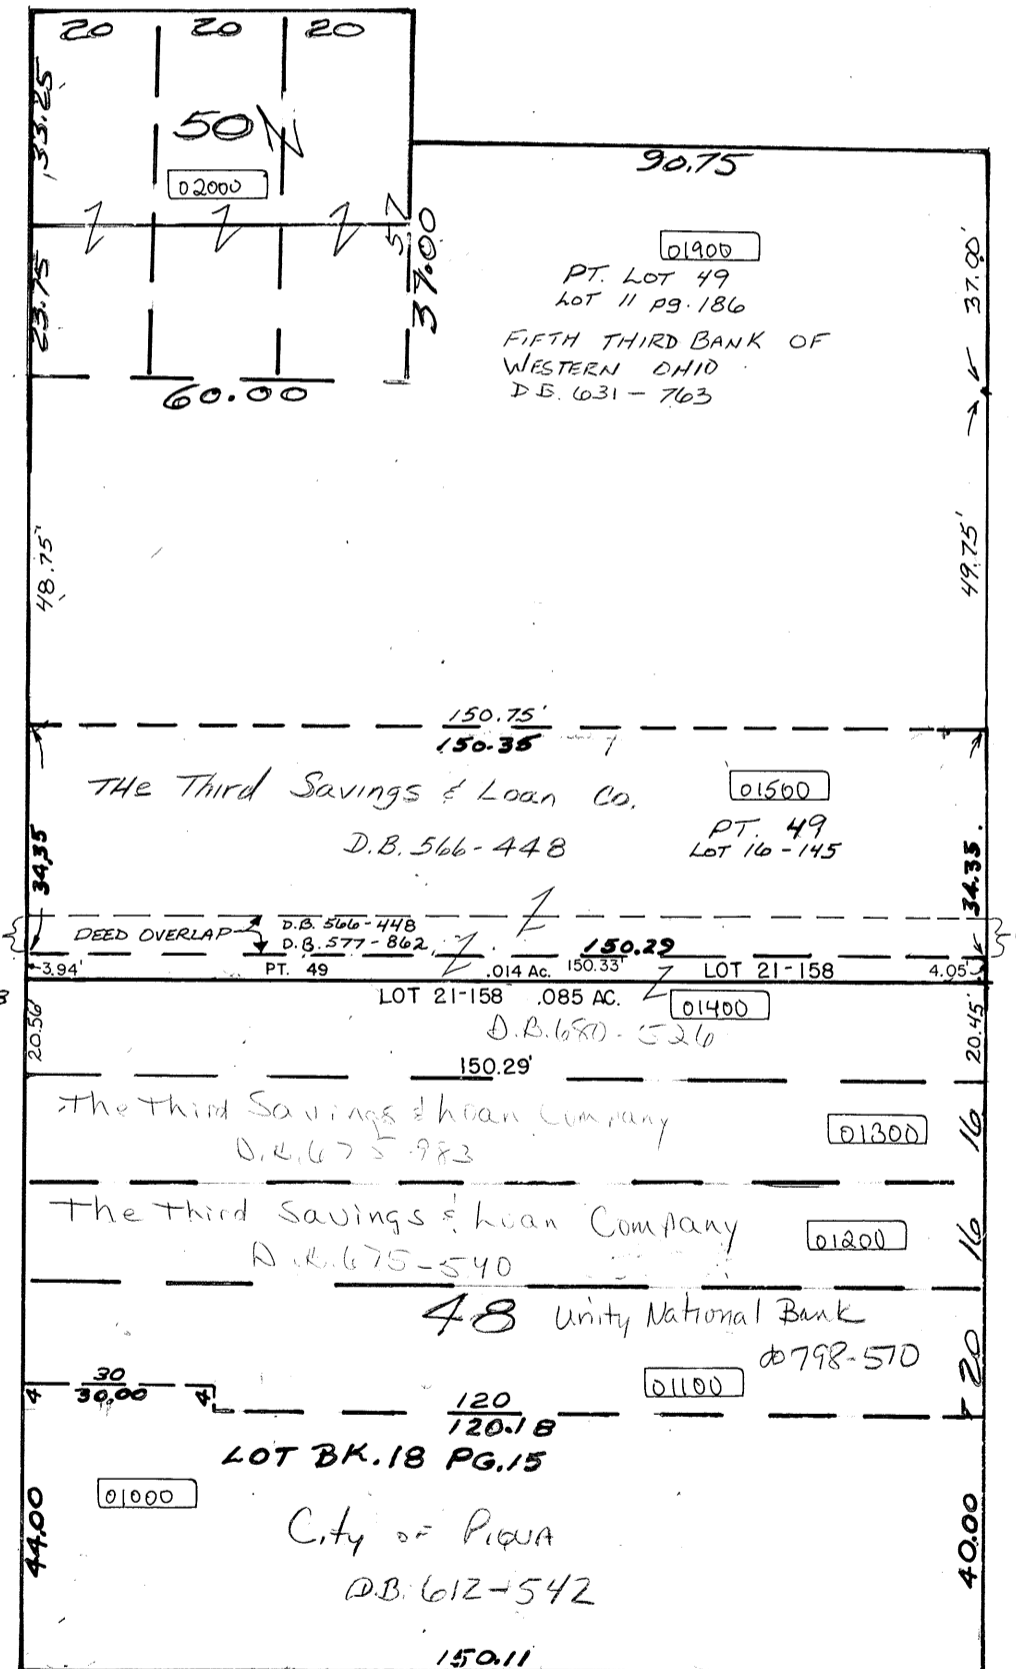 20 20 20
33.25
50
02000
90.75
57
37.00
23.75
60.00
01900
PT. LOT 49
LOT 11 pg. 186
FIFTH THIRD BANK OF
WESTERN OHIO
D.B. 631 - 763
37.00'
48.75'
49.75'
150.75'
150.35
The Third Savings & Loan Co.
01500
D.B. 566-448
PT. 49
LOT 16-145
34.35
34.35
DEED OVERLAP
D.B. 566-448
D.B. 577-862
150.29
3.94'
PT. 49
.014 Ac.
150.33'
LOT 21-158
4.05'
LOT 21-158 .085 AC.
01400
20.56'
D.B. 680-526
20.45'
150.29'
The Third Savings & Loan Company
01300
16
675-983
The Third Savings & Loan Company
01200
16
675-540
48
Unity National Bank
798-570
20
01100
4
30
30.00
4
120
120.18
LOT BK. 18 PG. 15
01000
44.00
City of PIQUA
40.00
D.B. 612-542
150.11